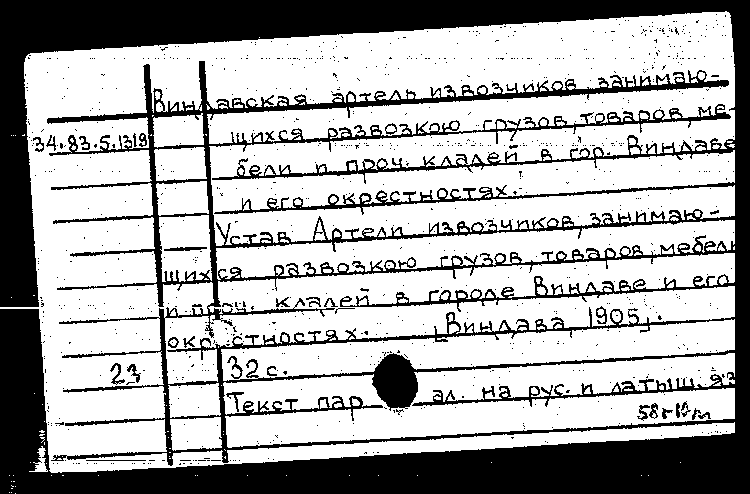 Виндавская артель извозчиков, занимаю-
34.83.5.1319 щихся развозкою грузов, товаров, ме-
бели и проч. кладей в гор. Виндаве
и его окрестностях.
Устав Артели извозчиков, занимаю-
щихся развозкою грузов, товаров, мебели
и проч. кладей в городе Виндаве и его
окрестностях. [Виндава, 1905].
23 32 с.
Текст парал. на рус. и латыш. яз